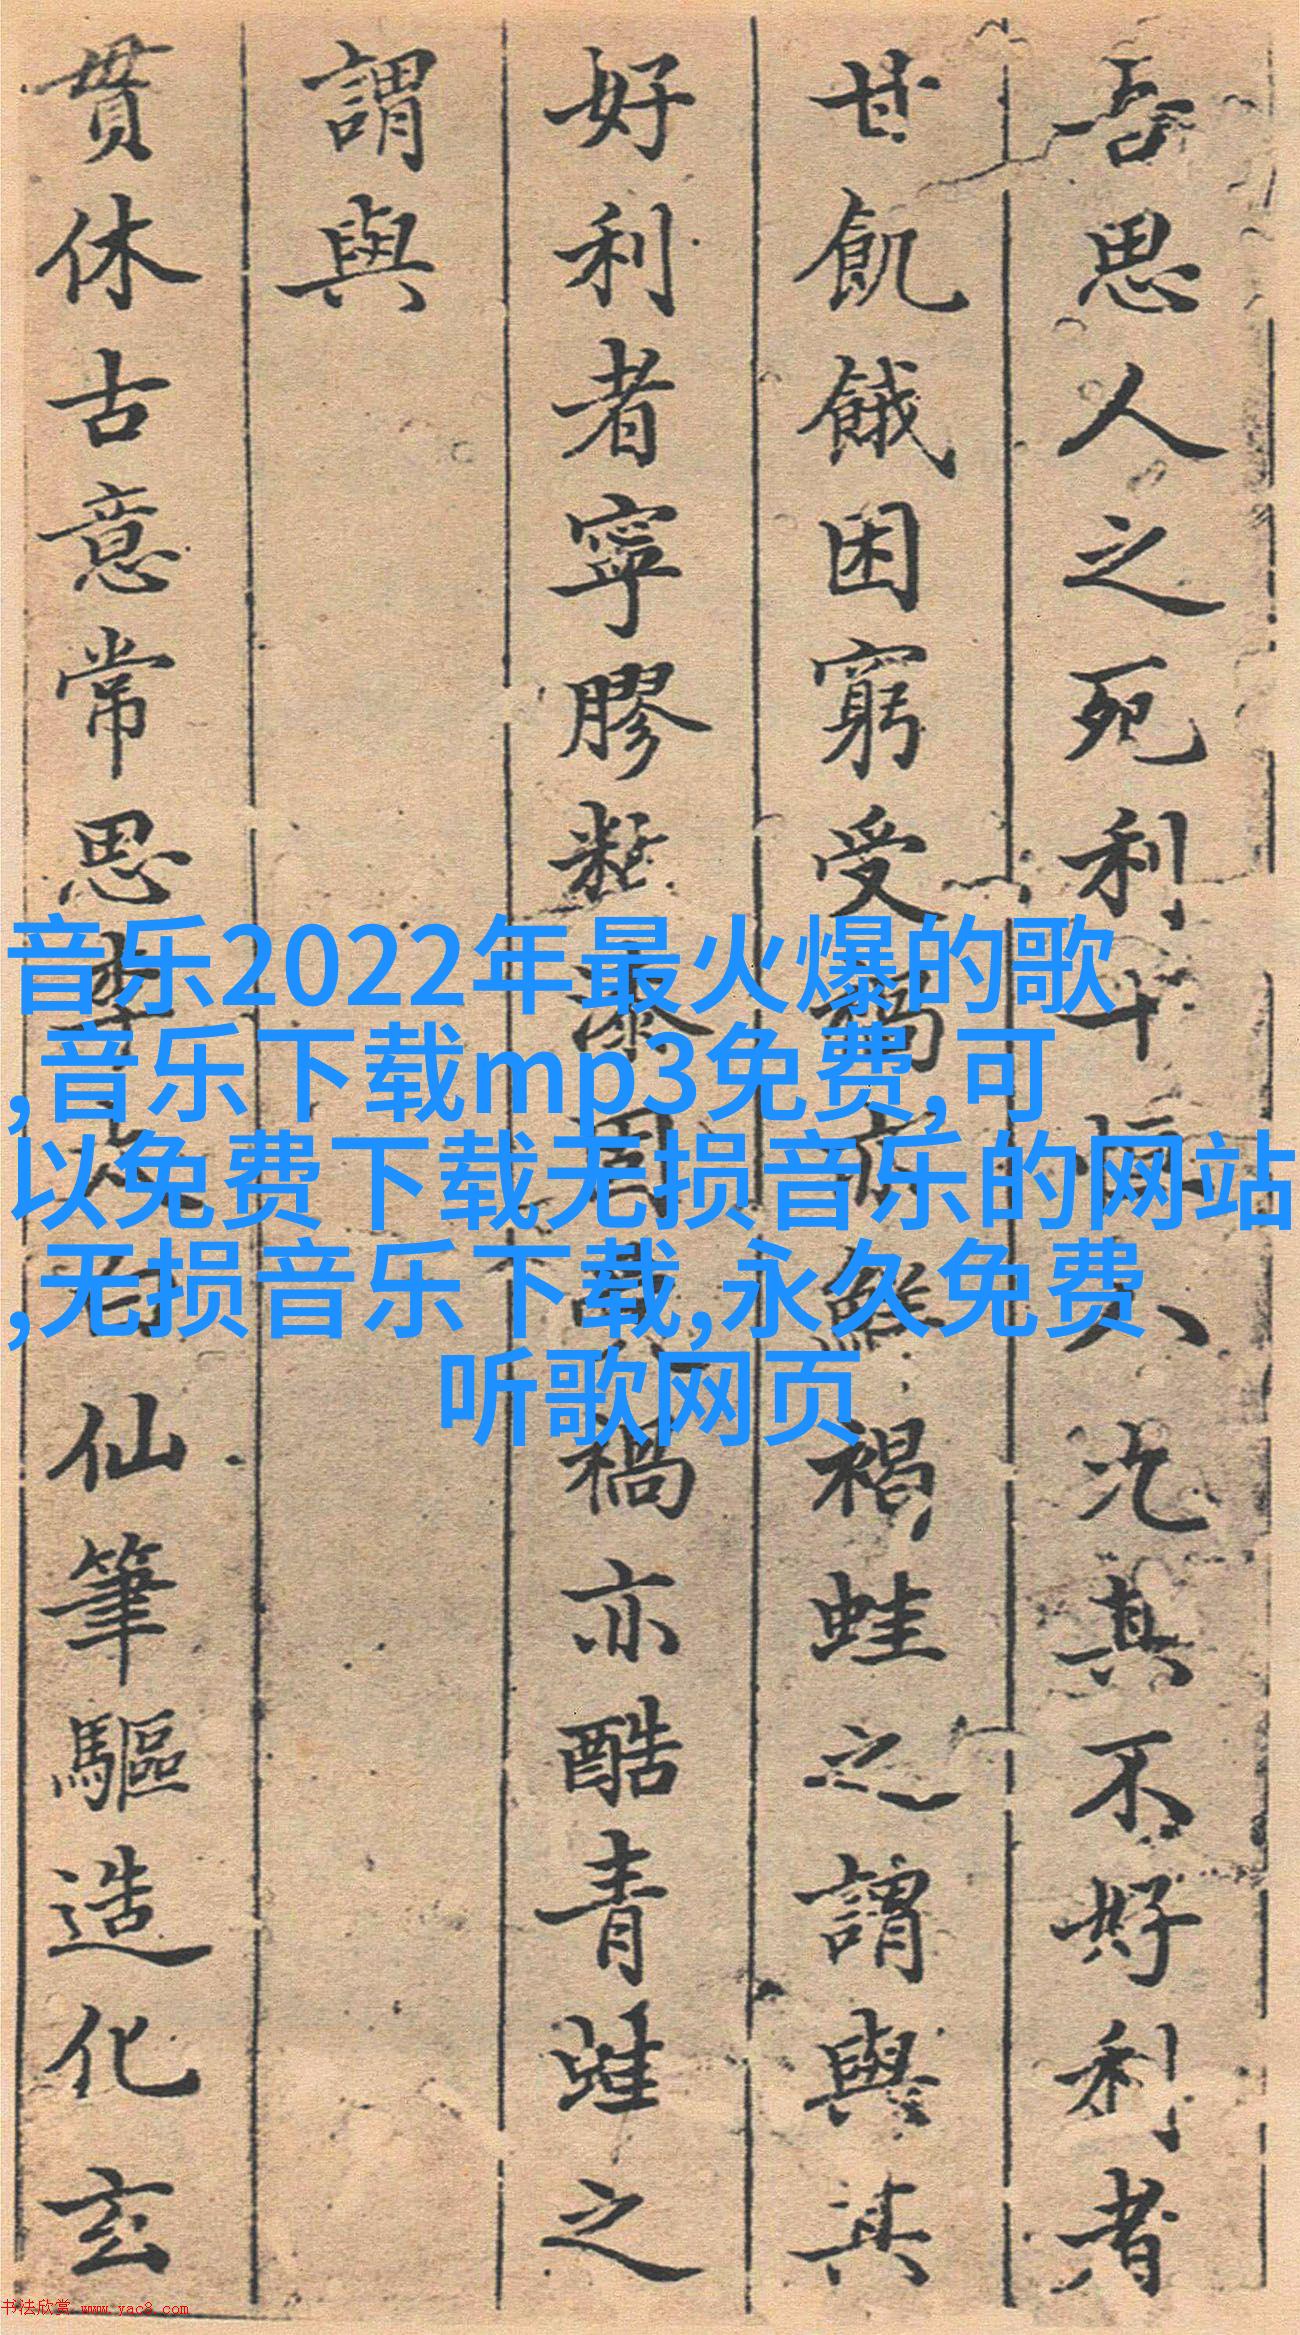 吾思人之死利十恒八況其不好利者
甘飢餓困窮受禍亦鮮褐蛙之謂與其
好利者寧膠黏禍亦酷青蛙之
謂與
貫休古意常思李太白仙筆驅造化玄
音乐2022年最火爆的歌
,音乐下载mp3免费,可
以免费下载无损音乐的网站
,无损音乐下载,永久免费
听歌网页
书法欣赏 www.yac8.com